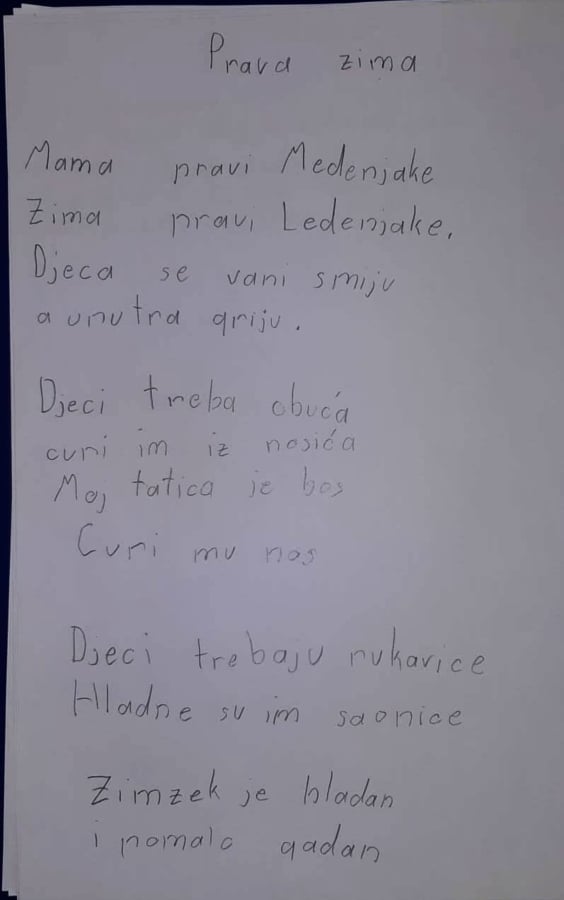 Prava zima
Mama pravi Medenjake
Zima pravi Ledenjake.
Djeca se vani smiju
a unutra griju.
Djeci treba obuća
curi im iz nosića
Moj tatica je bos
Curi mu nos
Djeci trebaju rukavice
Hladne su im saonice
Zimzek je hladan
i pomalo gadan